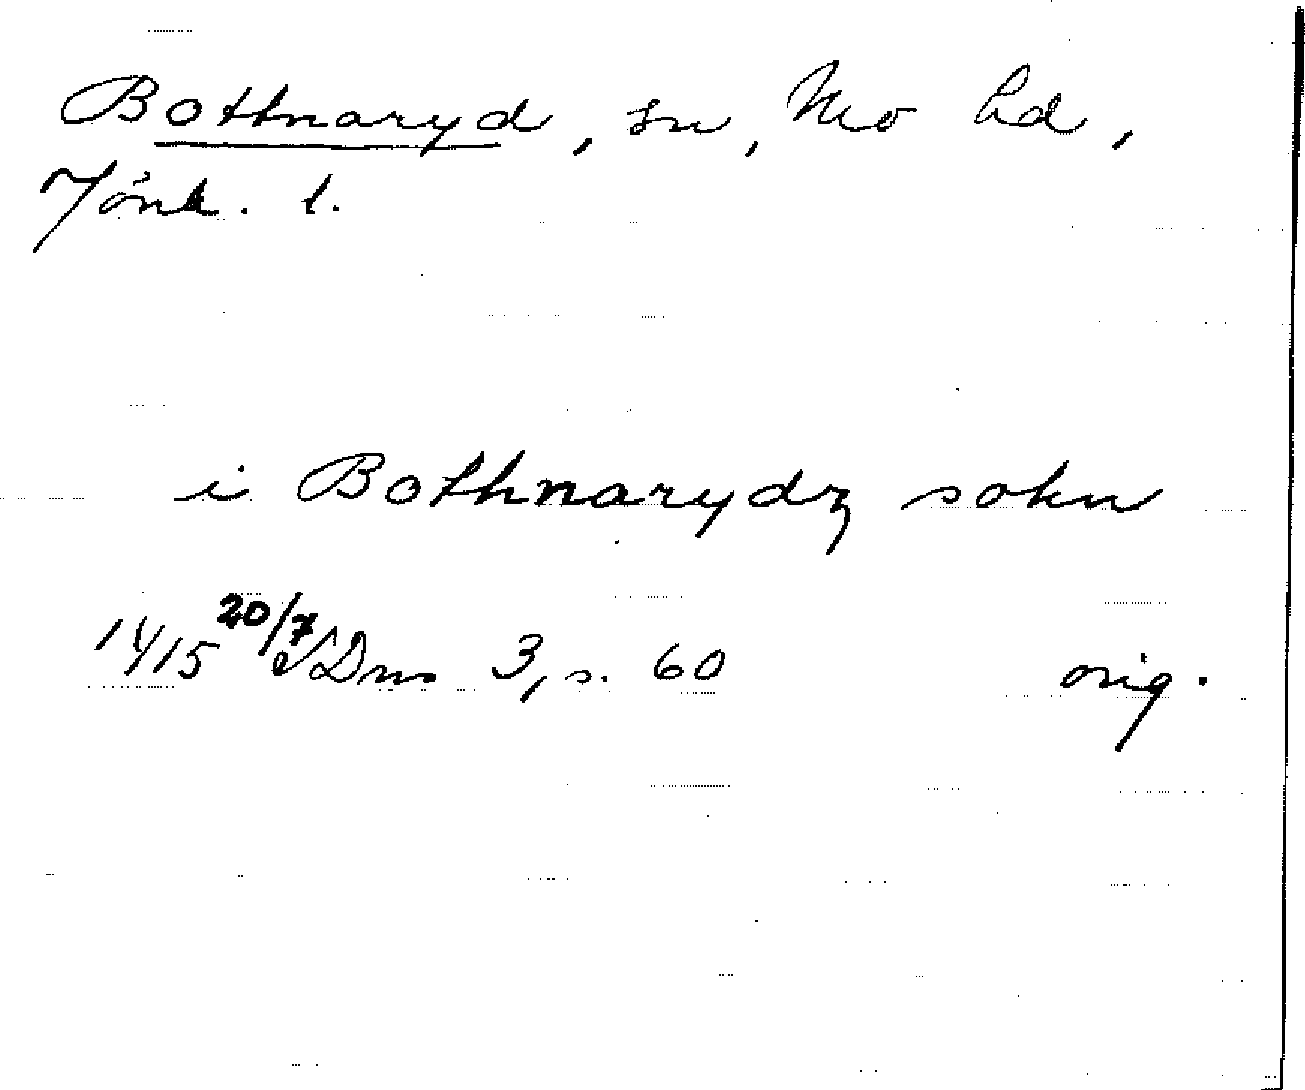 Bottnaryd, sn, Mo hd,
Jönk. l.
i Bothnarydz sokn
1415 20/7 SDns 3, s. 60 orig.